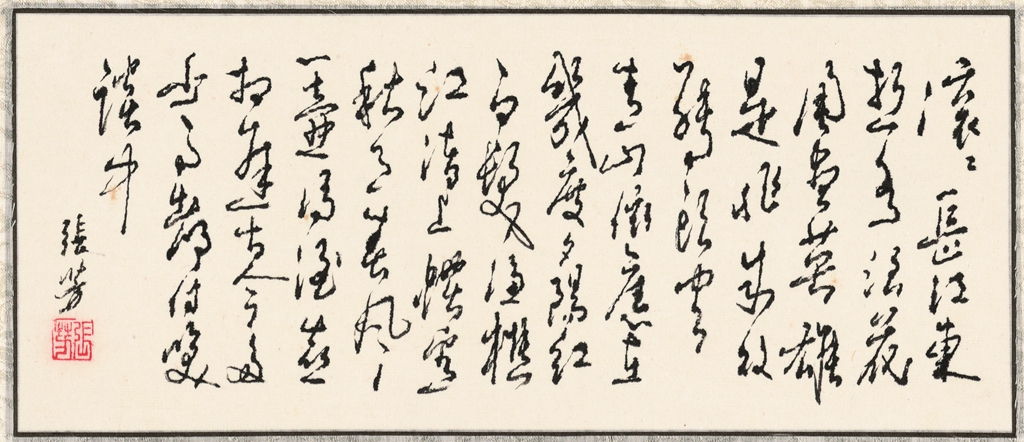 滾々長江東
逝水浪花
淘盡英雄
是非成敗
轉頭空
青山依舊在
幾度夕陽紅
白髮漁樵
江渚上慣看
秋月春風
一壺濁酒喜
相逢古今多
少事都付笑
談中
張芳
張芳